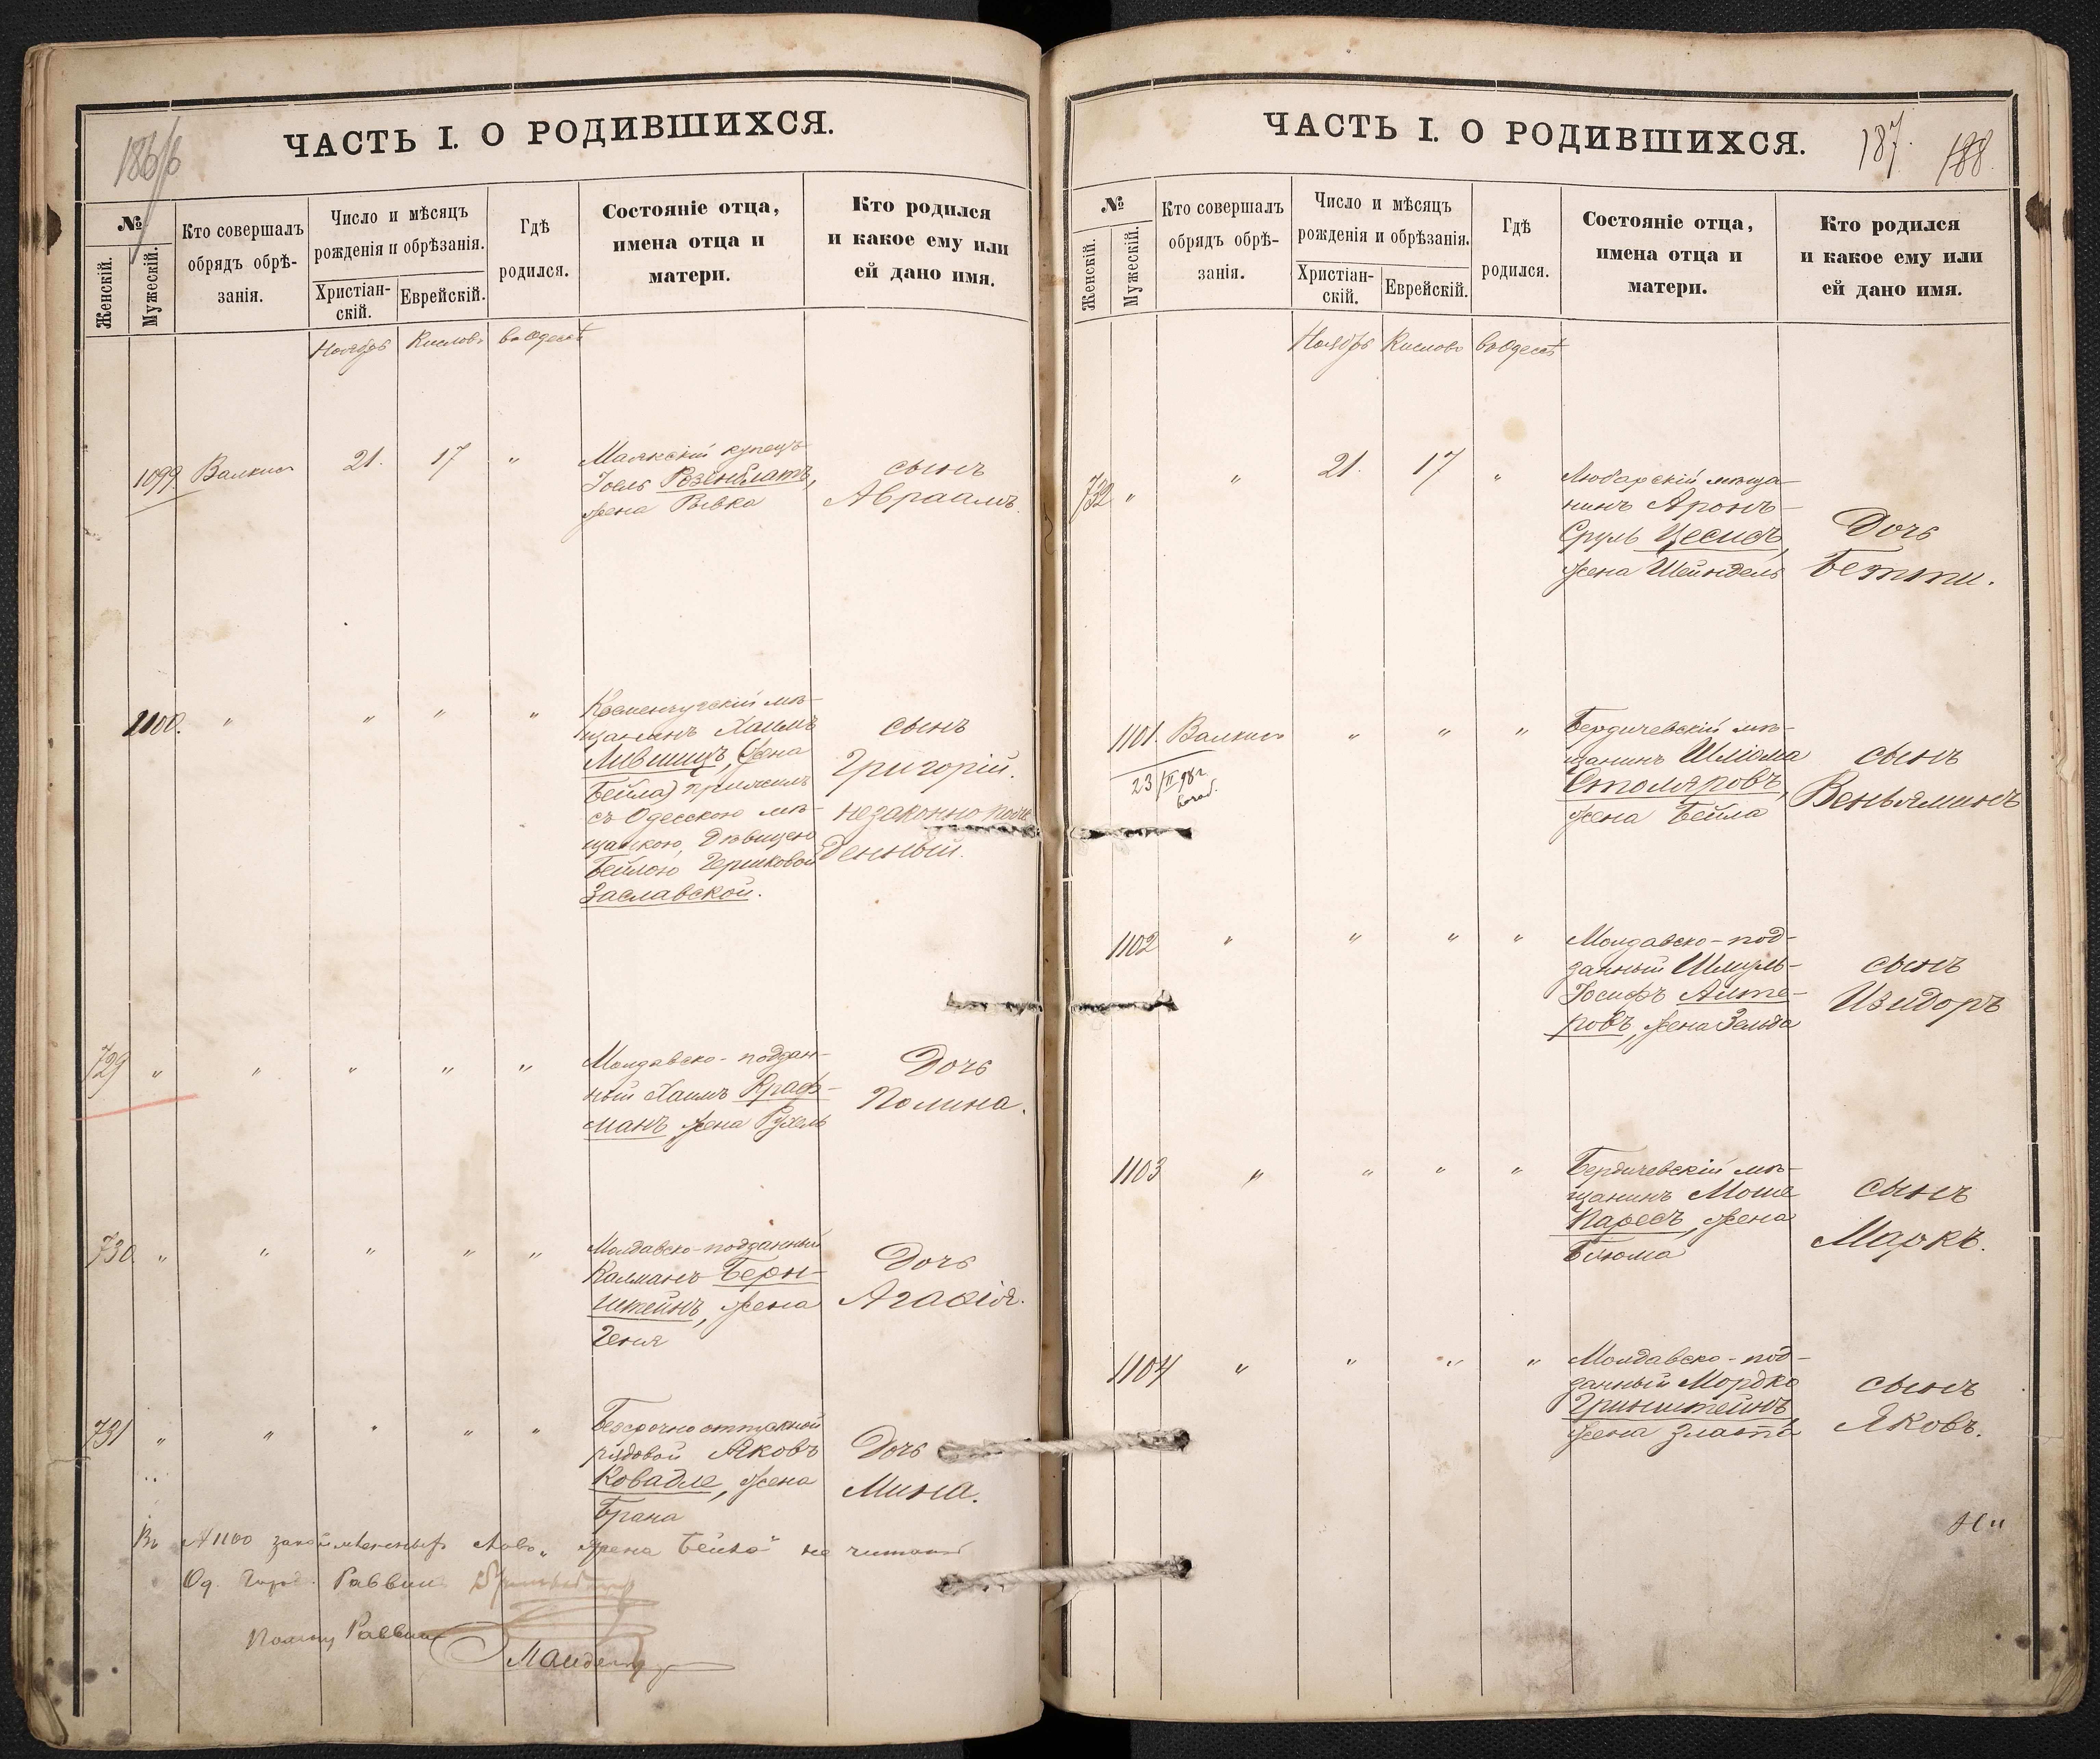 186/6
ЧАСТЬ I. О РОДИВШИХСЯ.
№
Женскій.
Мужескій.
Кто совершалъ
обрядъ обрѣ-
занія.
Число и мѣсяцъ
рожденія и обрѣзанія.
Христіан-
скій.
Еврейскій.
Гдѣ
родился.
Состояніе отца,
имена отца и
матери.
Кто родился
и какое ему или
ей дано имя.
Ноябрь Кислевъ въ Одессѣ
1099 Валкисъ 21. 17 "
Маякскій купецъ
Іоель Розенблатъ,
жена Рывка
сынъ
Авраамъ.
1100. " " " "
Кременчугскій мѣ-
щанинъ Хаимъ
Лившицъ, (жена
Бейла) прижилъ
съ Одесскою мѣ-
щанкою, Дѣвицею
Бейлою Гершковой
Заславской.
сынъ
Григорій.
незаконно рож
денный.
729 " " " " "
Молдавско-поддан-
ный Хаимъ Краф-
манъ жена Рухель
Дочь
Полина.
730. " " " " "
Молдавско-подданный
Калманъ Берн-
штейнъ, жена
Геня
Дочь
Агафія.
731 " " " " "
Безсрочноотпускной
рядовой Яковъ
Ковадле, жена
Брана
Дочь
Мина.
Въ № 1100 слово „жена Бейла" не читать
Од. Город. Раввинъ
Помощ Раввина
ЧАСТЬ I. О РОДИВШИХСЯ.
187. 188.
№
Женскій.
Мужескій.
Кто совершалъ
обрядъ обрѣ-
занія.
Число и мѣсяцъ
рожденія и обрѣзанія.
Христіан-
скій.
Еврейскій.
Гдѣ
родился.
Состояніе отца,
имена отца и
матери.
Кто родился
и какое ему или
ей дано имя.
Ноябрь Кислевъ въ Одессѣ
732 " " 21. 17 "
Любарскій мѣща-
нинъ Аронъ-
Сруль Цесисъ,
жена Шейндель
Дочь
Бетти.
1101. Валкисъ " " "
23/II 98 г.
Бердичевскій мѣ-
щанинъ Шлiома
Столяровъ,
жена Бейла
сынъ
Веньяминъ
1102 " " " "
Молдавско-под-
данный Шмуль-
Іосифъ Алте-
ровъ, жена Зельда
сынъ
Изидоръ
1103 " " " "
Бердичевскій мѣ-
щанинъ Моше
Паресъ, жена
Блюма
сынъ
Маркъ.
1104 " " " "
Молдавско-под-
данный Мордко
Гринштейнъ
жена Злата
сынъ
Яковъ.